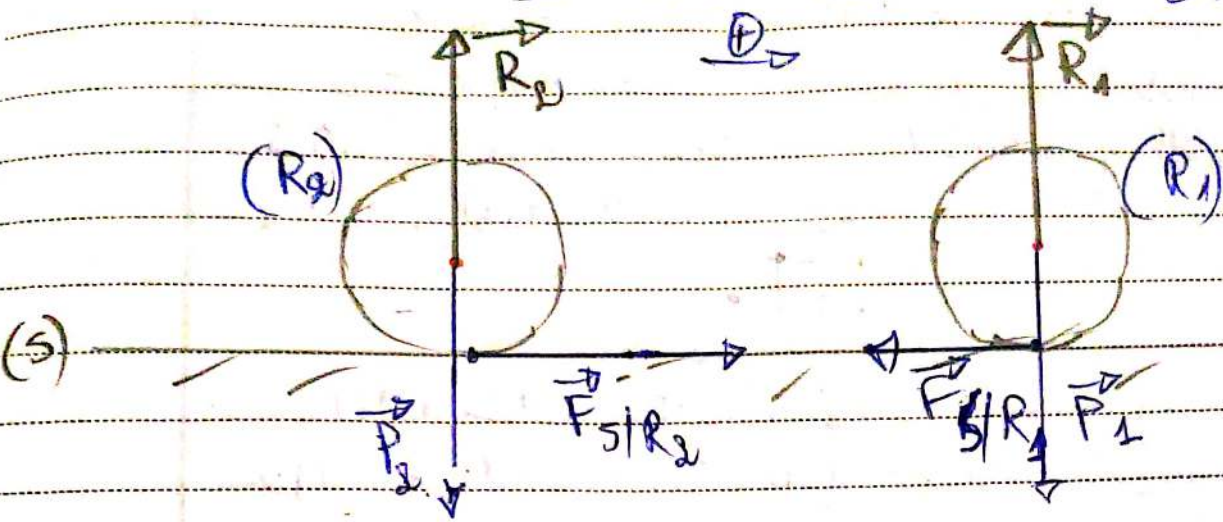 R₂ ⊕ R₁
(R₂) (R₁)
(S)
P₂ F S/R₂ F S/R₁ P₁